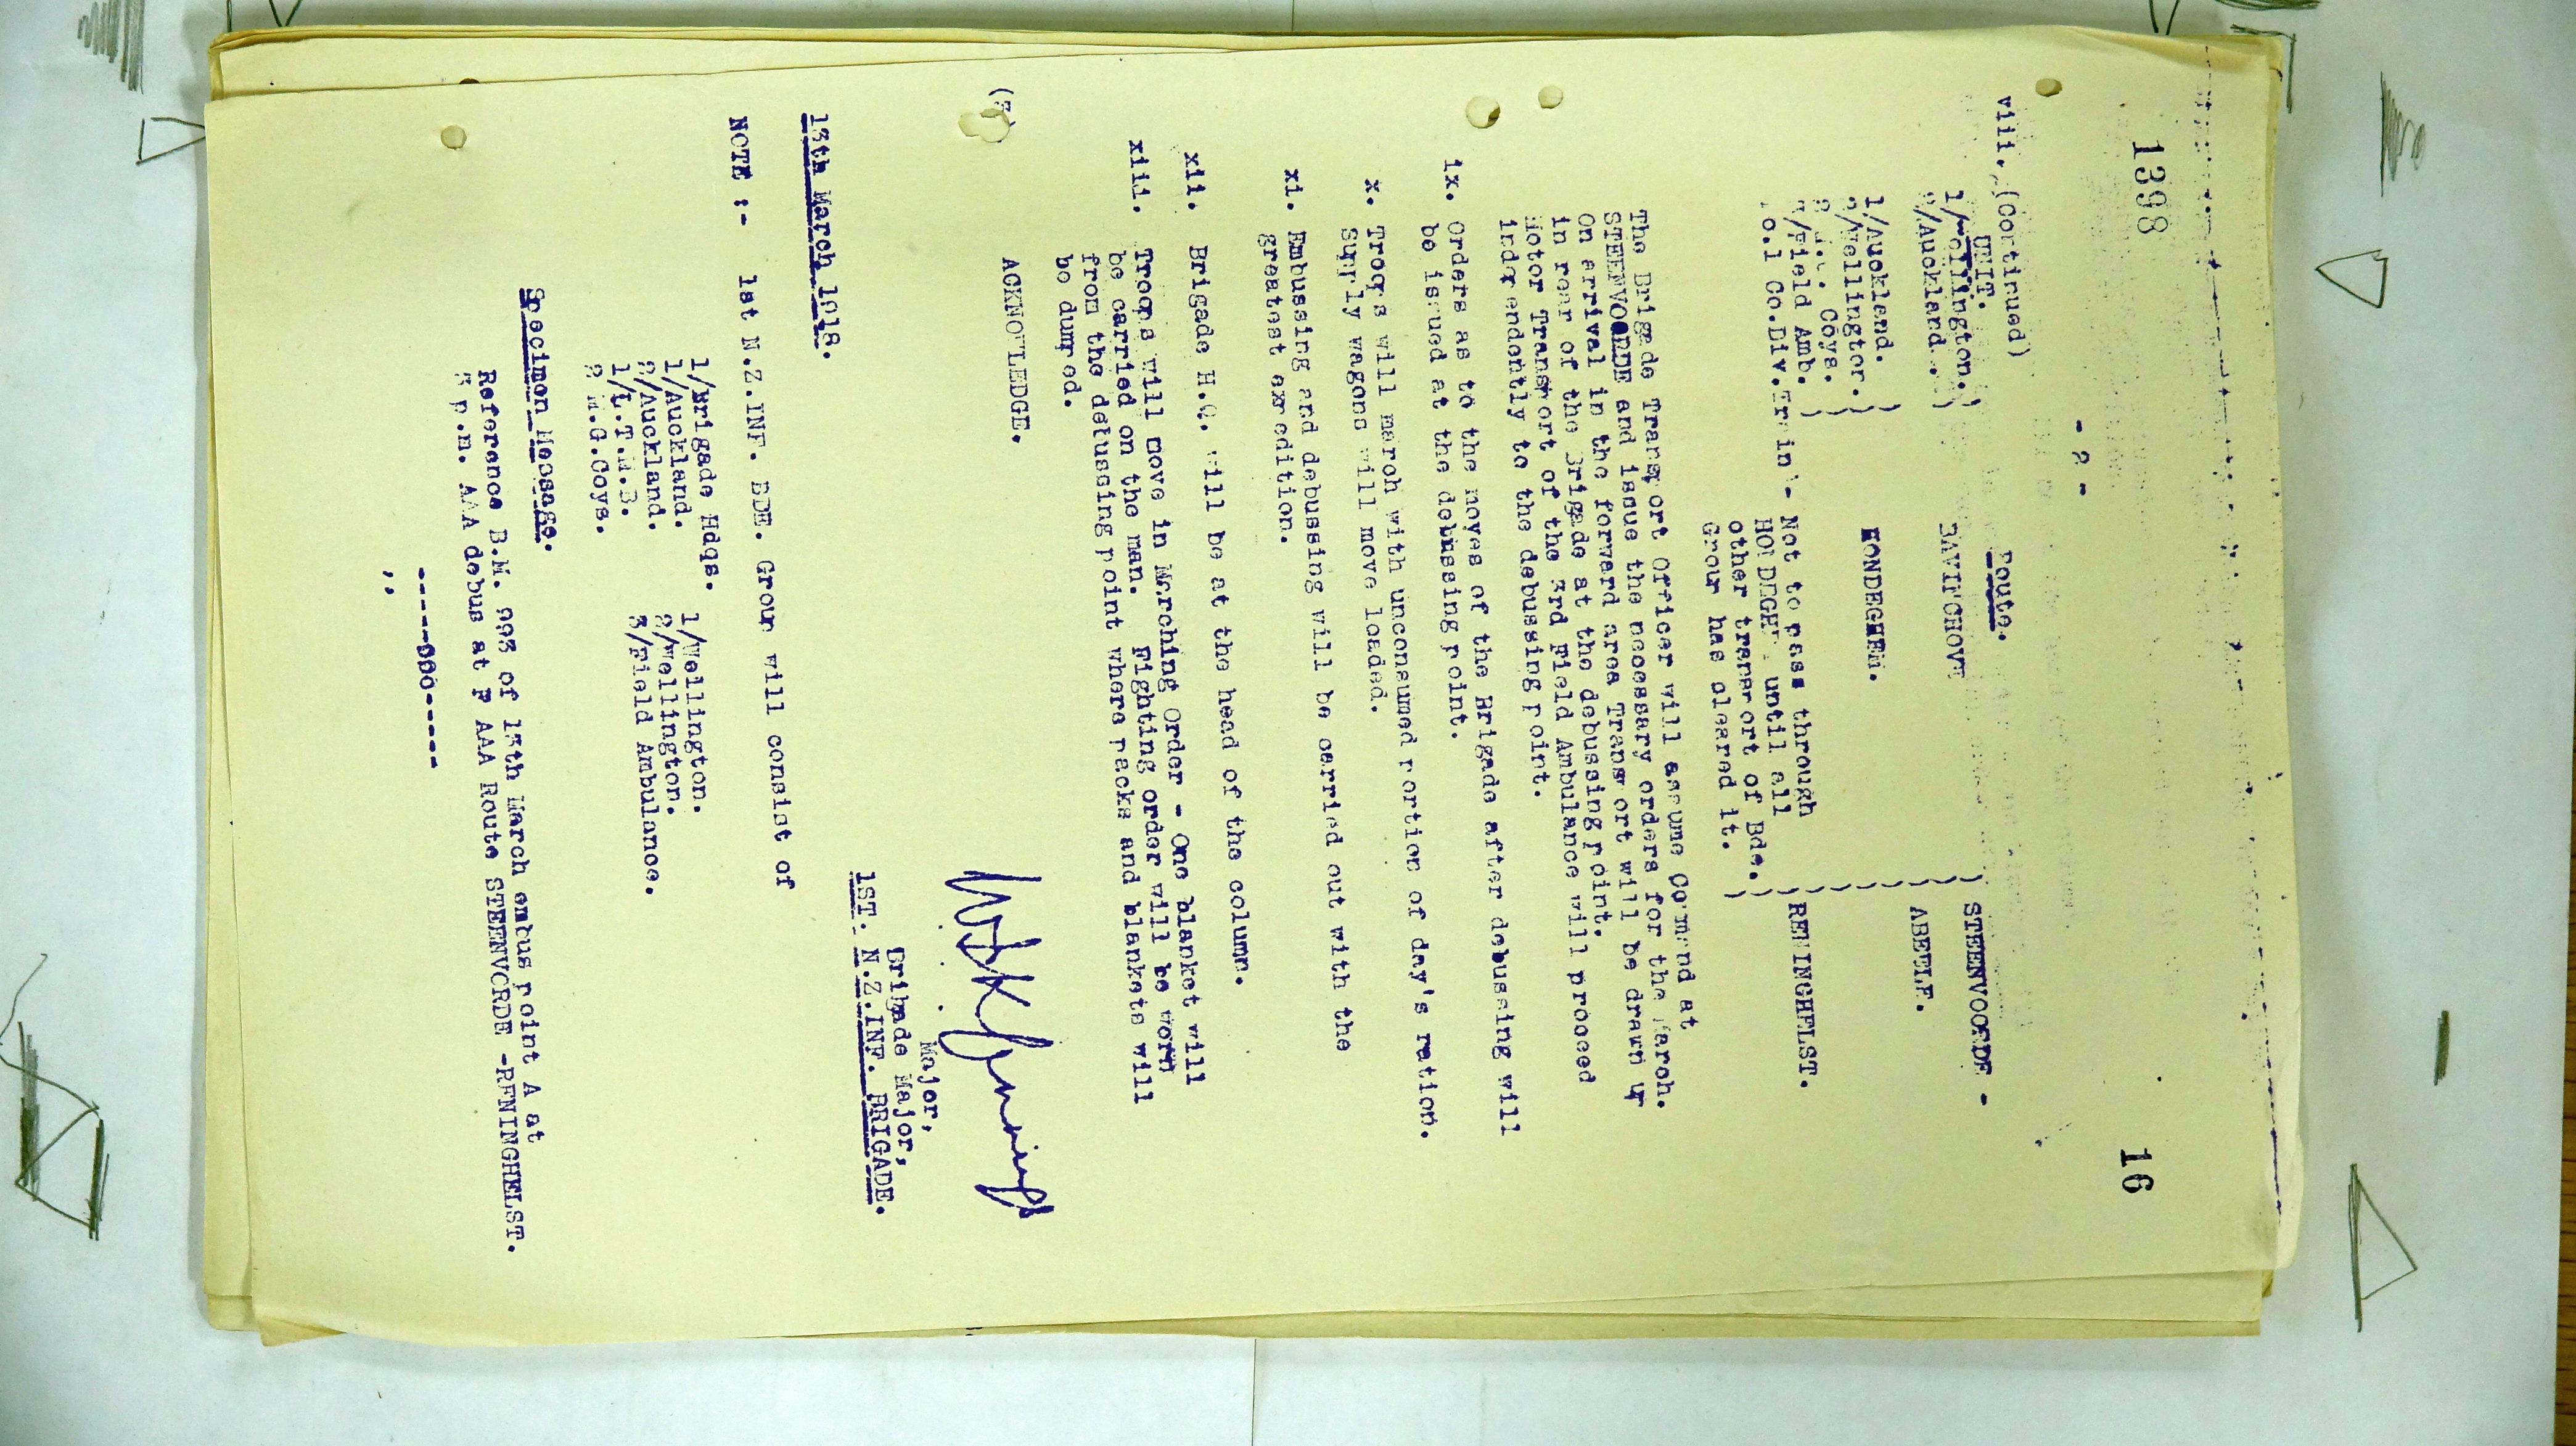 1398
16
- 2 -
viii. (Continued)
UNIT. Route.
1/Wellington. ) STEENVOORDE -
2/Auckland. ) ABEELE.
1/Auckland. )
2/Wellington. ) HONDEGHEM.
Coys. )
3/Field Amb. ) RENINGHELST.
o.1 Co.Div.Train - Not to pass through
until all
other transport of Bde. )
Group has cleared it. )
The Brigade Transport Officer will assume Command at
STEENVOORDE and issue the necessary orders for the March.
On arrival in the forward area Transport will be drawn up
in rear of the Brigade at the debussing point.
Motor Transport of the 3rd Field Ambulance will proceed
independently to the debussing point.
ix. Orders as to the moves of the Brigade after debussing will
be issued at the debussing point.
x. Troops will march with unconsumed portion of day's ration.
Supply wagons will move loaded.
xi. Embussing and debussing will be carried out with the
greatest expedition.
xii. Brigade H.Q. will be at the head of the column.
xiii. Troops will move in Marching Order - One blanket will
be carried on the man. Fighting order will be worn
from the debussing point where packs and blankets will
be dumped.
ACKNOWLEDGE.
Major,
Brihade Major,
1ST. N.Z.INF. BRIGADE.
13th March 1918.
NOTE :- 1st N.Z.INF. BDE. Group will consist of
1/Brigade Hdqs. 1/Wellington.
1/Auckland. 2/Wellington.
2/Auckland. 3/Field Ambulance.
1/L.T.M.B.
2 M.G.Coys.
Specimen Message.
Reference B.M. 993 of 13th March embus point A at
3 p.m. AAA debus at F AAA Route STEENVORDE -RENINGHELST.
-----000------